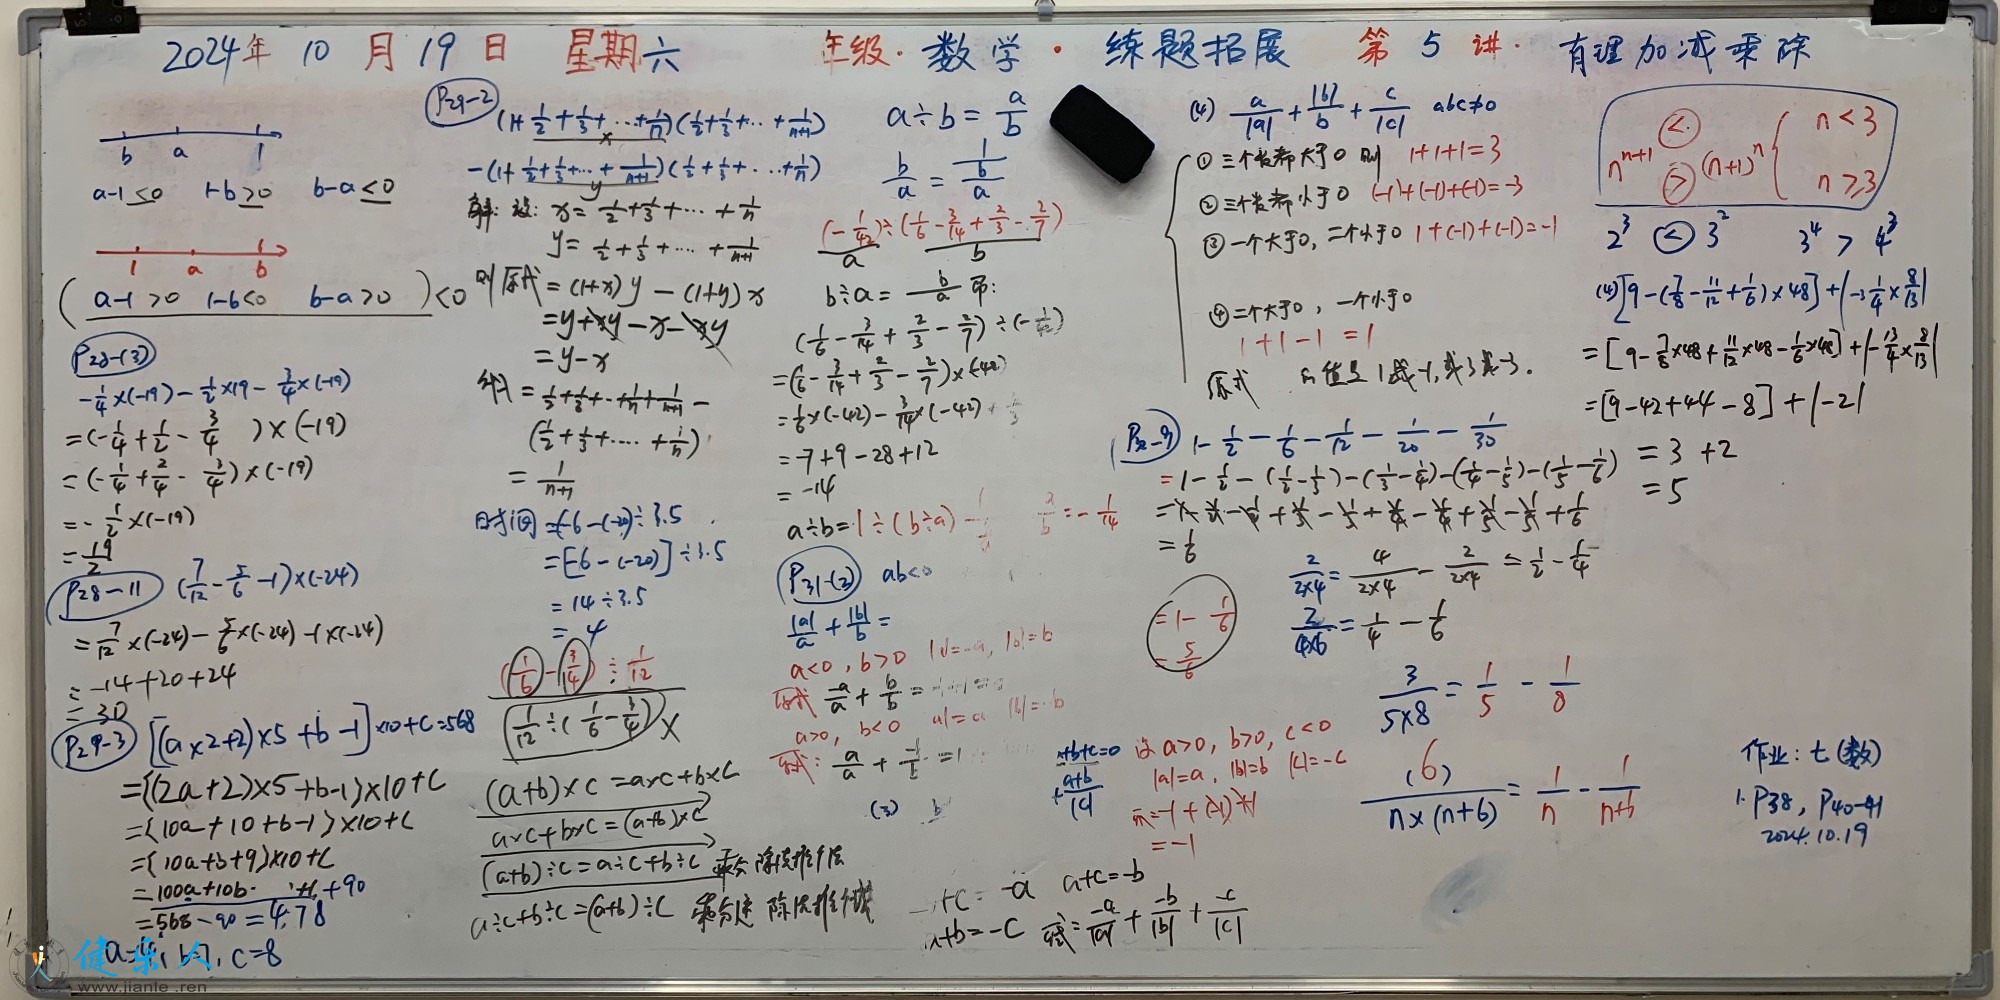 2024年 10 月 19 日 星期六 年级·数学·练题拓展 第 5 讲· 有理加减乘除
b a 1
a-1≤0 1-b≥0 b-a≤0
1 a b
(a-1>0 1-b<0 b-a>0)<0
P28-(3)
-1/4×(-19)-1/2×19-3/4×(-19)
=(-1/4+1/2-3/4)×(-19)
=(-1/4+2/4-3/4)×(-19)
=-1/2×(-19)
=19/2
P28-11 (7/12-5/6-1)×(-24)
=7/12×(-24)-5/6×(-24)-1×(-24)
=-14+20+24
=30
P29-3 [(a×2+2)×5+b-1]×10+c=568
={(2a+2)×5+b-1}×10+c
={10a+10+b-1}×10+c
={10a+b+9}×10+c
=100a+10b+c+90
=568-90=478
c=8
P29-2
(1+1/2+1/3+…+1/n)(1/2+1/3+…+1/(n+1))
x
-(1+1/2+1/3+…+1/(n+1))(1/2+1/3+…+1/n)
y
解:设:x=1/2+1/3+…+1/n
y=1/2+1/3+…+1/(n+1)
则原式=(1+x)y-(1+y)x
=y+xy-x-xy
=y-x
=1/2+1/3+…+1/n+1/(n+1)-
(1/2+1/3+…+1/n)
=1/(n+1)
=[-6-(-20)]÷3.5
=14÷3.5
=4
(1/6-3/14)÷1/12
1/12÷(1/6-3/4) ×
(a+b)×c=a×c+b×c
a×c+b×c=(a+b)×c
(a+b)÷c=a÷c+b÷c
a÷c+b÷c=(a+b)÷c
a÷b=a/b
b/a=1/b/a
(-1/42)÷(1/6-3/14+2/3-2/7)
a b
b÷a=b/a 即:
(1/6-3/14+2/3-2/7)÷(-1/42)
=(1/6-3/14+2/3-2/7)×(-42)
=1/6×(-42)-3/14×(-42)+
=-7+9-28+12
=-14
a÷b=1÷(b÷a) a/b=-1/14
P31-(2) ab<0
|a|/a+|b|/b=
a<0,b>0 |a|=-a,|b|=b
原式 -a/a+b/b=
a>0,b<0 |a|=a |b|=-b
原式:a/a+
(3) b
(4) a/|a|+|b|/b+c/|c| abc≠0
①三个数都大于0 则 1+1+1=3
②三个数都小于0 (-1)+(-1)+(-1)=-3
③一个大于0,二个小于0 1+(-1)+(-1)=-1
④二个大于0,一个小于0
1+1-1=1
原式 的值是1或-1,或3或-3.
P32-9 1-1/2-1/6-1/12-1/20-1/30
=1-1/2-(1/2-1/3)-(1/3-1/4)-(1/4-1/5)-(1/5-1/6)
=1-1/2-1/2+1/3-1/3+1/4-1/4+1/5-1/5+1/6
=1/6
=1-1/6
=5/6
2/(2×4)=4/(2×4)-2/(2×4)=1/2-1/4
2/(4×6)=1/4-1/6
3/(5×8)=1/5-1/8
(6)/(n×(n+6))=1/n-1/(n+6)
a+b+c=0 设a>0,b>0,c<0
a+b/|c| |a|=a,|b|=b |c|=-c
=-1
+c=-a a+c=-b
a+b=-c 原式=-a/|a|+-b/|b|+-c/|c|
n^(n+1) < > (n+1)^n { n<3 n≥3
2³ < 3² 3⁴ > 4³
(4)[9-(7/8-11/12+1/6)×48]+|-3 1/4×8/13|
=[9-7/8×48+11/12×48-1/6×48]+|-13/4×8/13|
=[9-42+44-8]+|-2|
=3+2
=5
作业:七(数)
1.P38,P40-41
2024.10.19
健乐人
www.jianle.ren